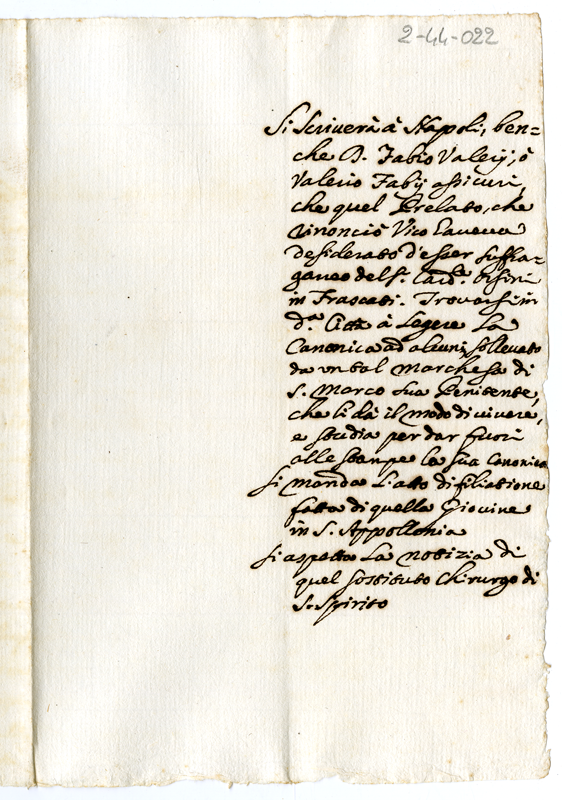 2-44-022
Si scriverà à Napoli, ben=
che D. Fabio Valerij, ò
Valerio Fabij assicuri,
che quel Prelato, che
rinonciò Vico haveva
desiderato d'esser suffra=
ganeo del S.r Card.le Orsini
in Frascati. Trovarsi in
d.a Città à Legere La
Canonica ad alcuni, sollevato
da un tal Marchese di
S. Marco sua Penitente,
che li dà il modo di vivere,
e studia per dar fuori
alle stampe la sua Canonica
Si manda L'atto di filiatione
fatta di quella Giovine
in S. Appollonia
Si aspetta La notizia di
quel sostituto Chirurgo di
S. Spirito